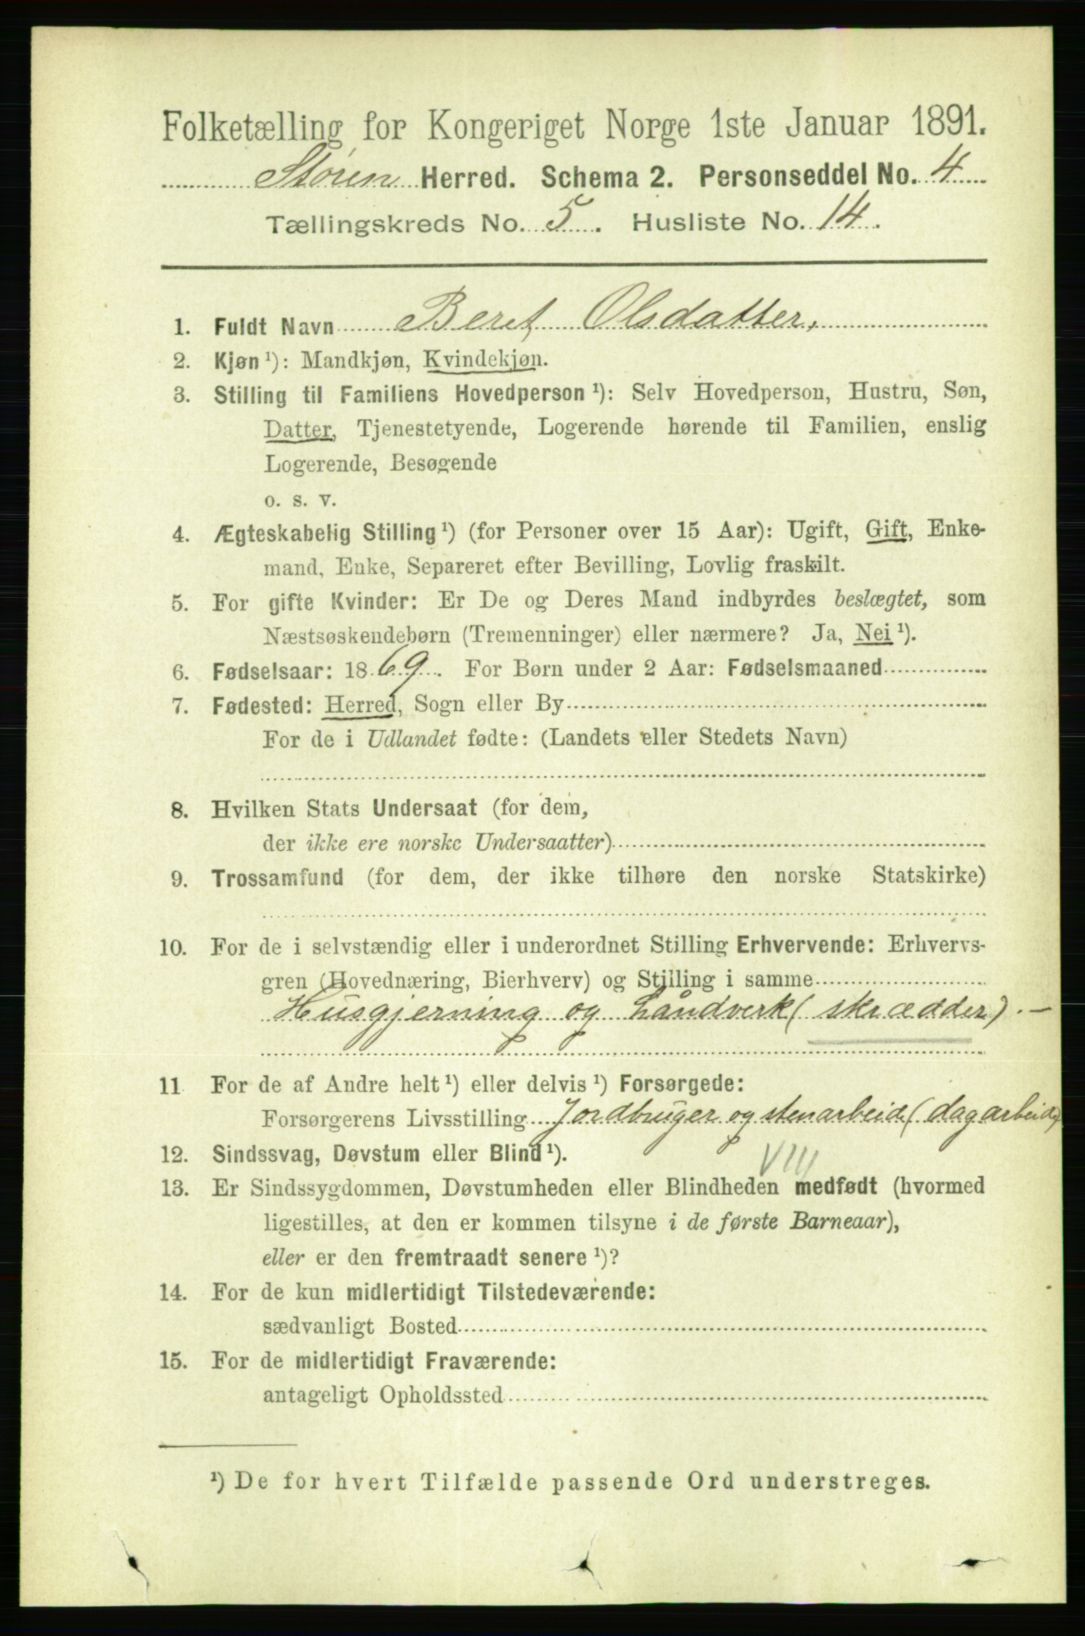 Folketælling for Kongeriget Norge 1ste Januar 1891.
Støren Herred. Schema 2. Personseddel No. 4
Tællingskreds No. 5. Husliste No. 14.
1. Fuldt Navn Beret Olsdatter,
2. Kjøn ¹): Mandkjøn, Kvindekjøn.
3. Stilling til Familiens Hovedperson ¹): Selv Hovedperson, Hustru, Søn,
Datter, Tjenestetyende, Logerende hørende til Familien, enslig
Logerende, Besøgende
o. s. v.
4. Ægteskabelig Stilling ¹) (for Personer over 15 Aar): Ugift, Gift, Enke-
mand, Enke, Separeret efter Bevilling, Lovlig fraskilt.
5. For gifte Kvinder: Er De og Deres Mand indbyrdes beslægtet, som
Næstsøskendebørn (Tremenninger) eller nærmere? Ja, Nei ¹).
6. Fødselsaar: 1869. For Børn under 2 Aar: Fødselsmaaned
7. Fødested: Herred, Sogn eller By
For de i Udlandet fødte: (Landets eller Stedets Navn)
8. Hvilken Stats Undersaat (for dem,
der ikke ere norske Undersaatter)
9. Trossamfund (for dem, der ikke tilhøre den norske Statskirke)
10. For de i selvstændig eller i underordnet Stilling Erhvervende: Erhvervs-
gren (Hovednæring, Bierhverv) og Stilling i samme
Husgjerning og håndverk (skrædder). —
11 For de af Andre helt ¹) eller delvis ¹) Forsørgede:
Forsørgerens Livsstilling Jordbruger og stenarbeid. (dagarbeid)
VIII
12. Sindssvag, Døvstum eller Blind ¹).
13. Er Sindssygdommen, Døvstumheden eller Blindheden medfødt (hvormed
ligestilles, at den er kommen tilsyne i de første Barneaar),
eller er den fremtraadt senere ¹)?
14. For de kun midlertidigt Tilstedeværende:
sædvanligt Bosted
15. For de midlertidigt Fraværende:
antageligt Opholdssted
¹) De for hvert Tilfælde passende Ord understreges.